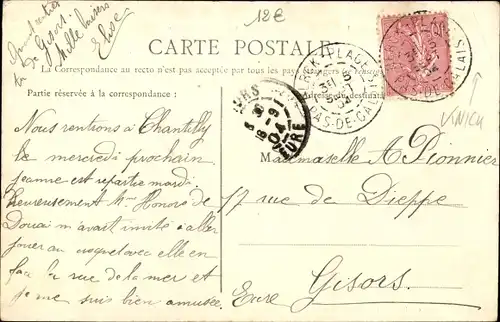 12€
Gisors.
Mille baisers
Elise
CARTE POSTALE
La Correspondance au recto n'est pas acceptée par tous les pays étrangers
Partie réservée à la correspondance :
Adresse du destinat
BERCK-PLAGE
PAS-DE-CALAIS
EURE
VINICK
Nous rentrions à Chantilly
le mercredi prochain
Jeanne est repartie mardi.
heureusement Mme Honoré de
Douai m'avait invité à aller
jouer au croquet avec elle en
face la rue de la mer et
je me suis bien amusée.
Mademoiselle A Pionnier
17 rue de Dieppe
Gisors.
Eure